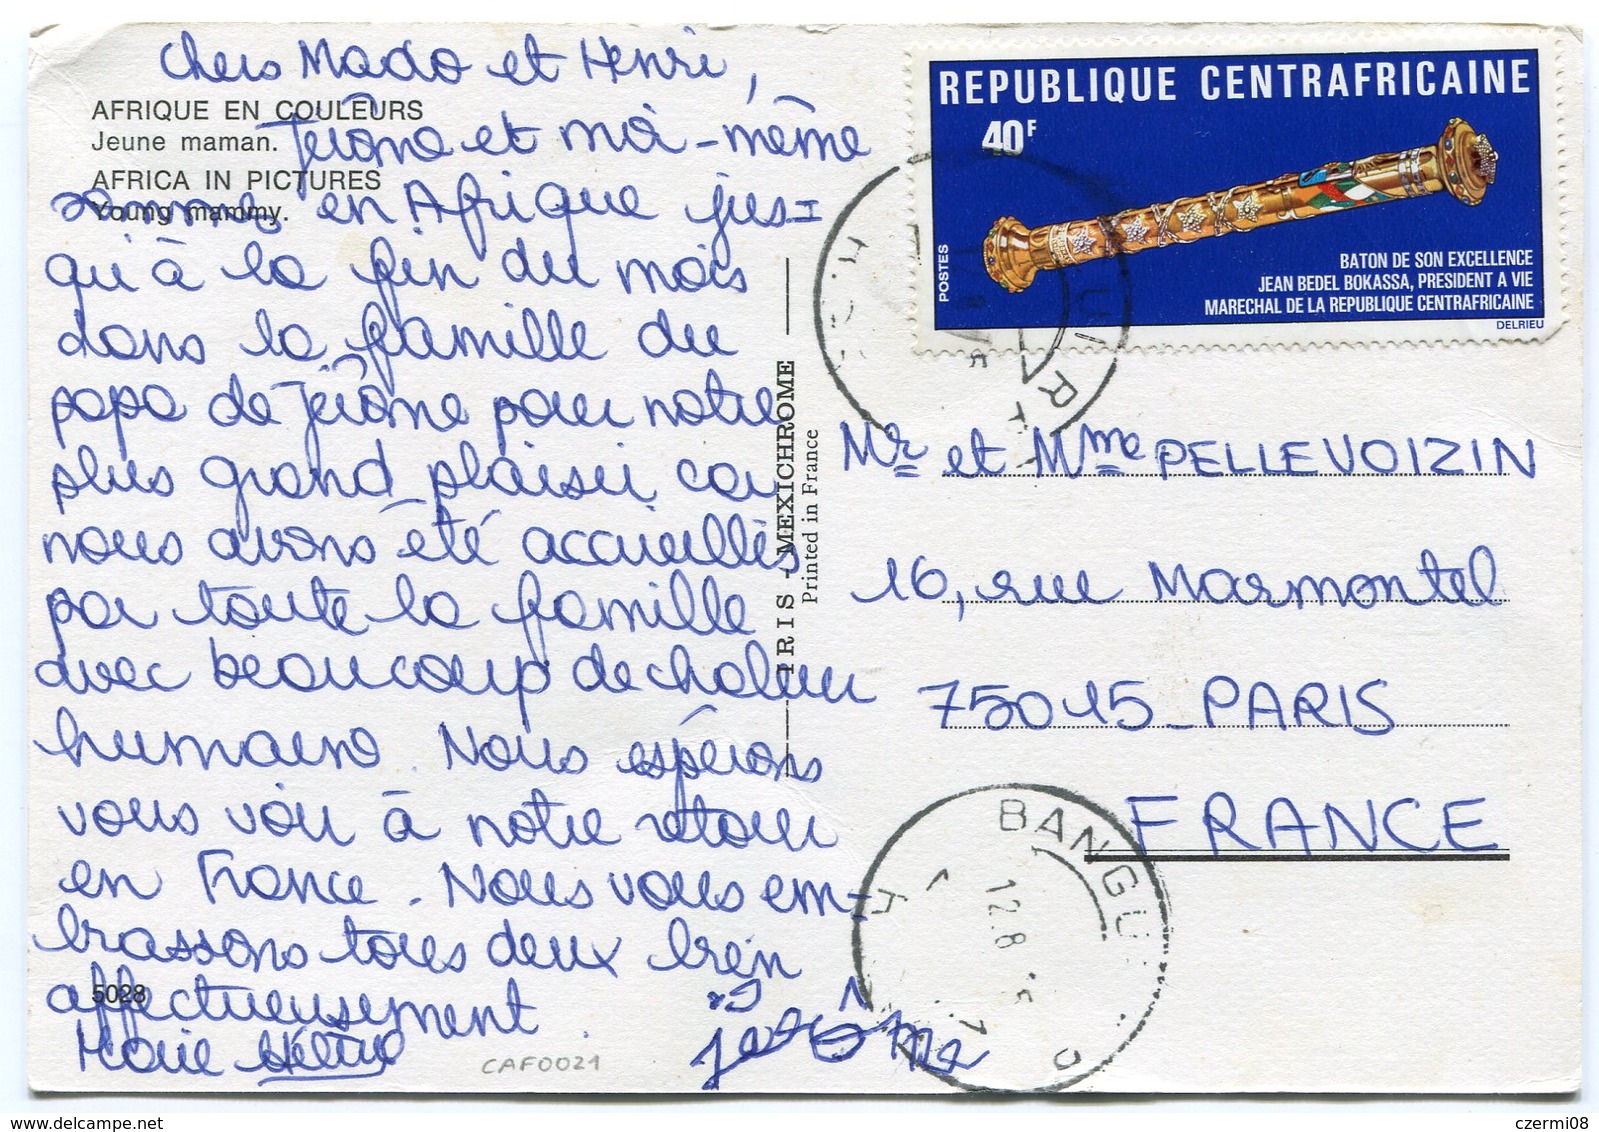 Chers Mado et Henri,
AFRIQUE EN COULEURS
Jeune maman.
AFRICA IN PICTURES
Young mammy.
Jérôme et moi-même
sommes en Afrique jus-
qu'à la fin du mois
dans la famille du
papa de Jérôme pour notre
plus grand plaisir car
nous avons été accueillis
par toute la famille
avec beaucoup de chaleur
humaine. Nous espérons
vous voir à notre retour
en France. Nous vous em-
brassons tous deux bien
affectueusement.
5028
Marie
Jérôme
CAF0021
IRIS - MEXICHROME
Printed in France
REPUBLIQUE CENTRAFRICAINE
40F
POSTES
BATON DE SON EXCELLENCE
JEAN BEDEL BOKASSA, PRESIDENT A VIE
MARECHAL DE LA REPUBLIQUE CENTRAFRICAINE
DELRIEU
Mr et Mme PELLEVOIZIN
16, rue Marmontel
75015 - PARIS
FRANCE
BANGUI
12.8
delcampe.net
czermi08